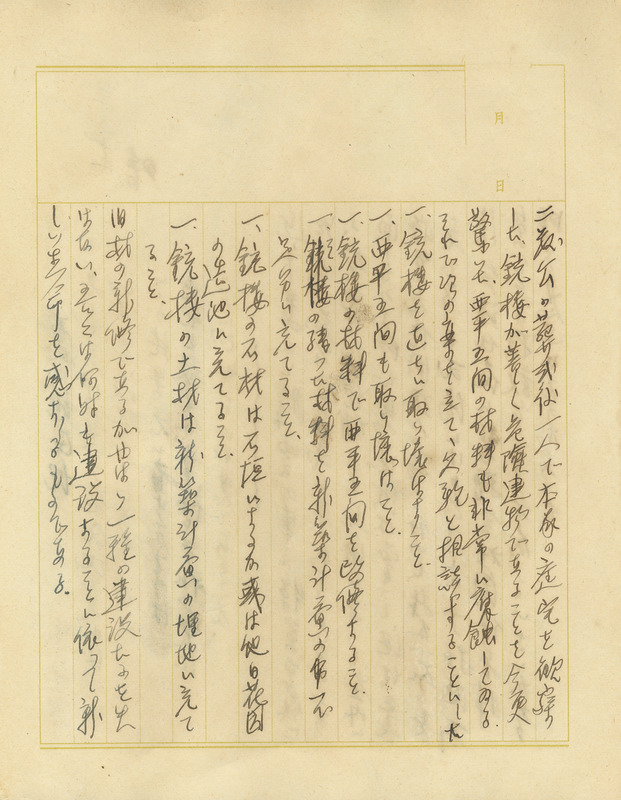 月
日
二叔公の葬式後一人で本家の産宅を観察
した、銃楼が著しく危険建物であることも今更
驚た、西平五間の材料も非常に腐蝕してゐる
それで次の案を立て、久乾と相談することにした
一、銃楼を直ちに取り壊すこと、
一、西平五間も取り壊はこと、
一、銃楼の材料で西平五間を改修すること
一、銃楼の残った材料を新築計画の分の不
足分に充てること、
一、銃楼の石材は石垣にするか或は他日花園
の造池に充てること、
一、銃楼の土材は新築計画の埋地に充て
ること、
旧材の新修であるが也は り一種の建設たるを失
はない、吾々は何時も建設することに依って新
しい生命を感ずるものである。